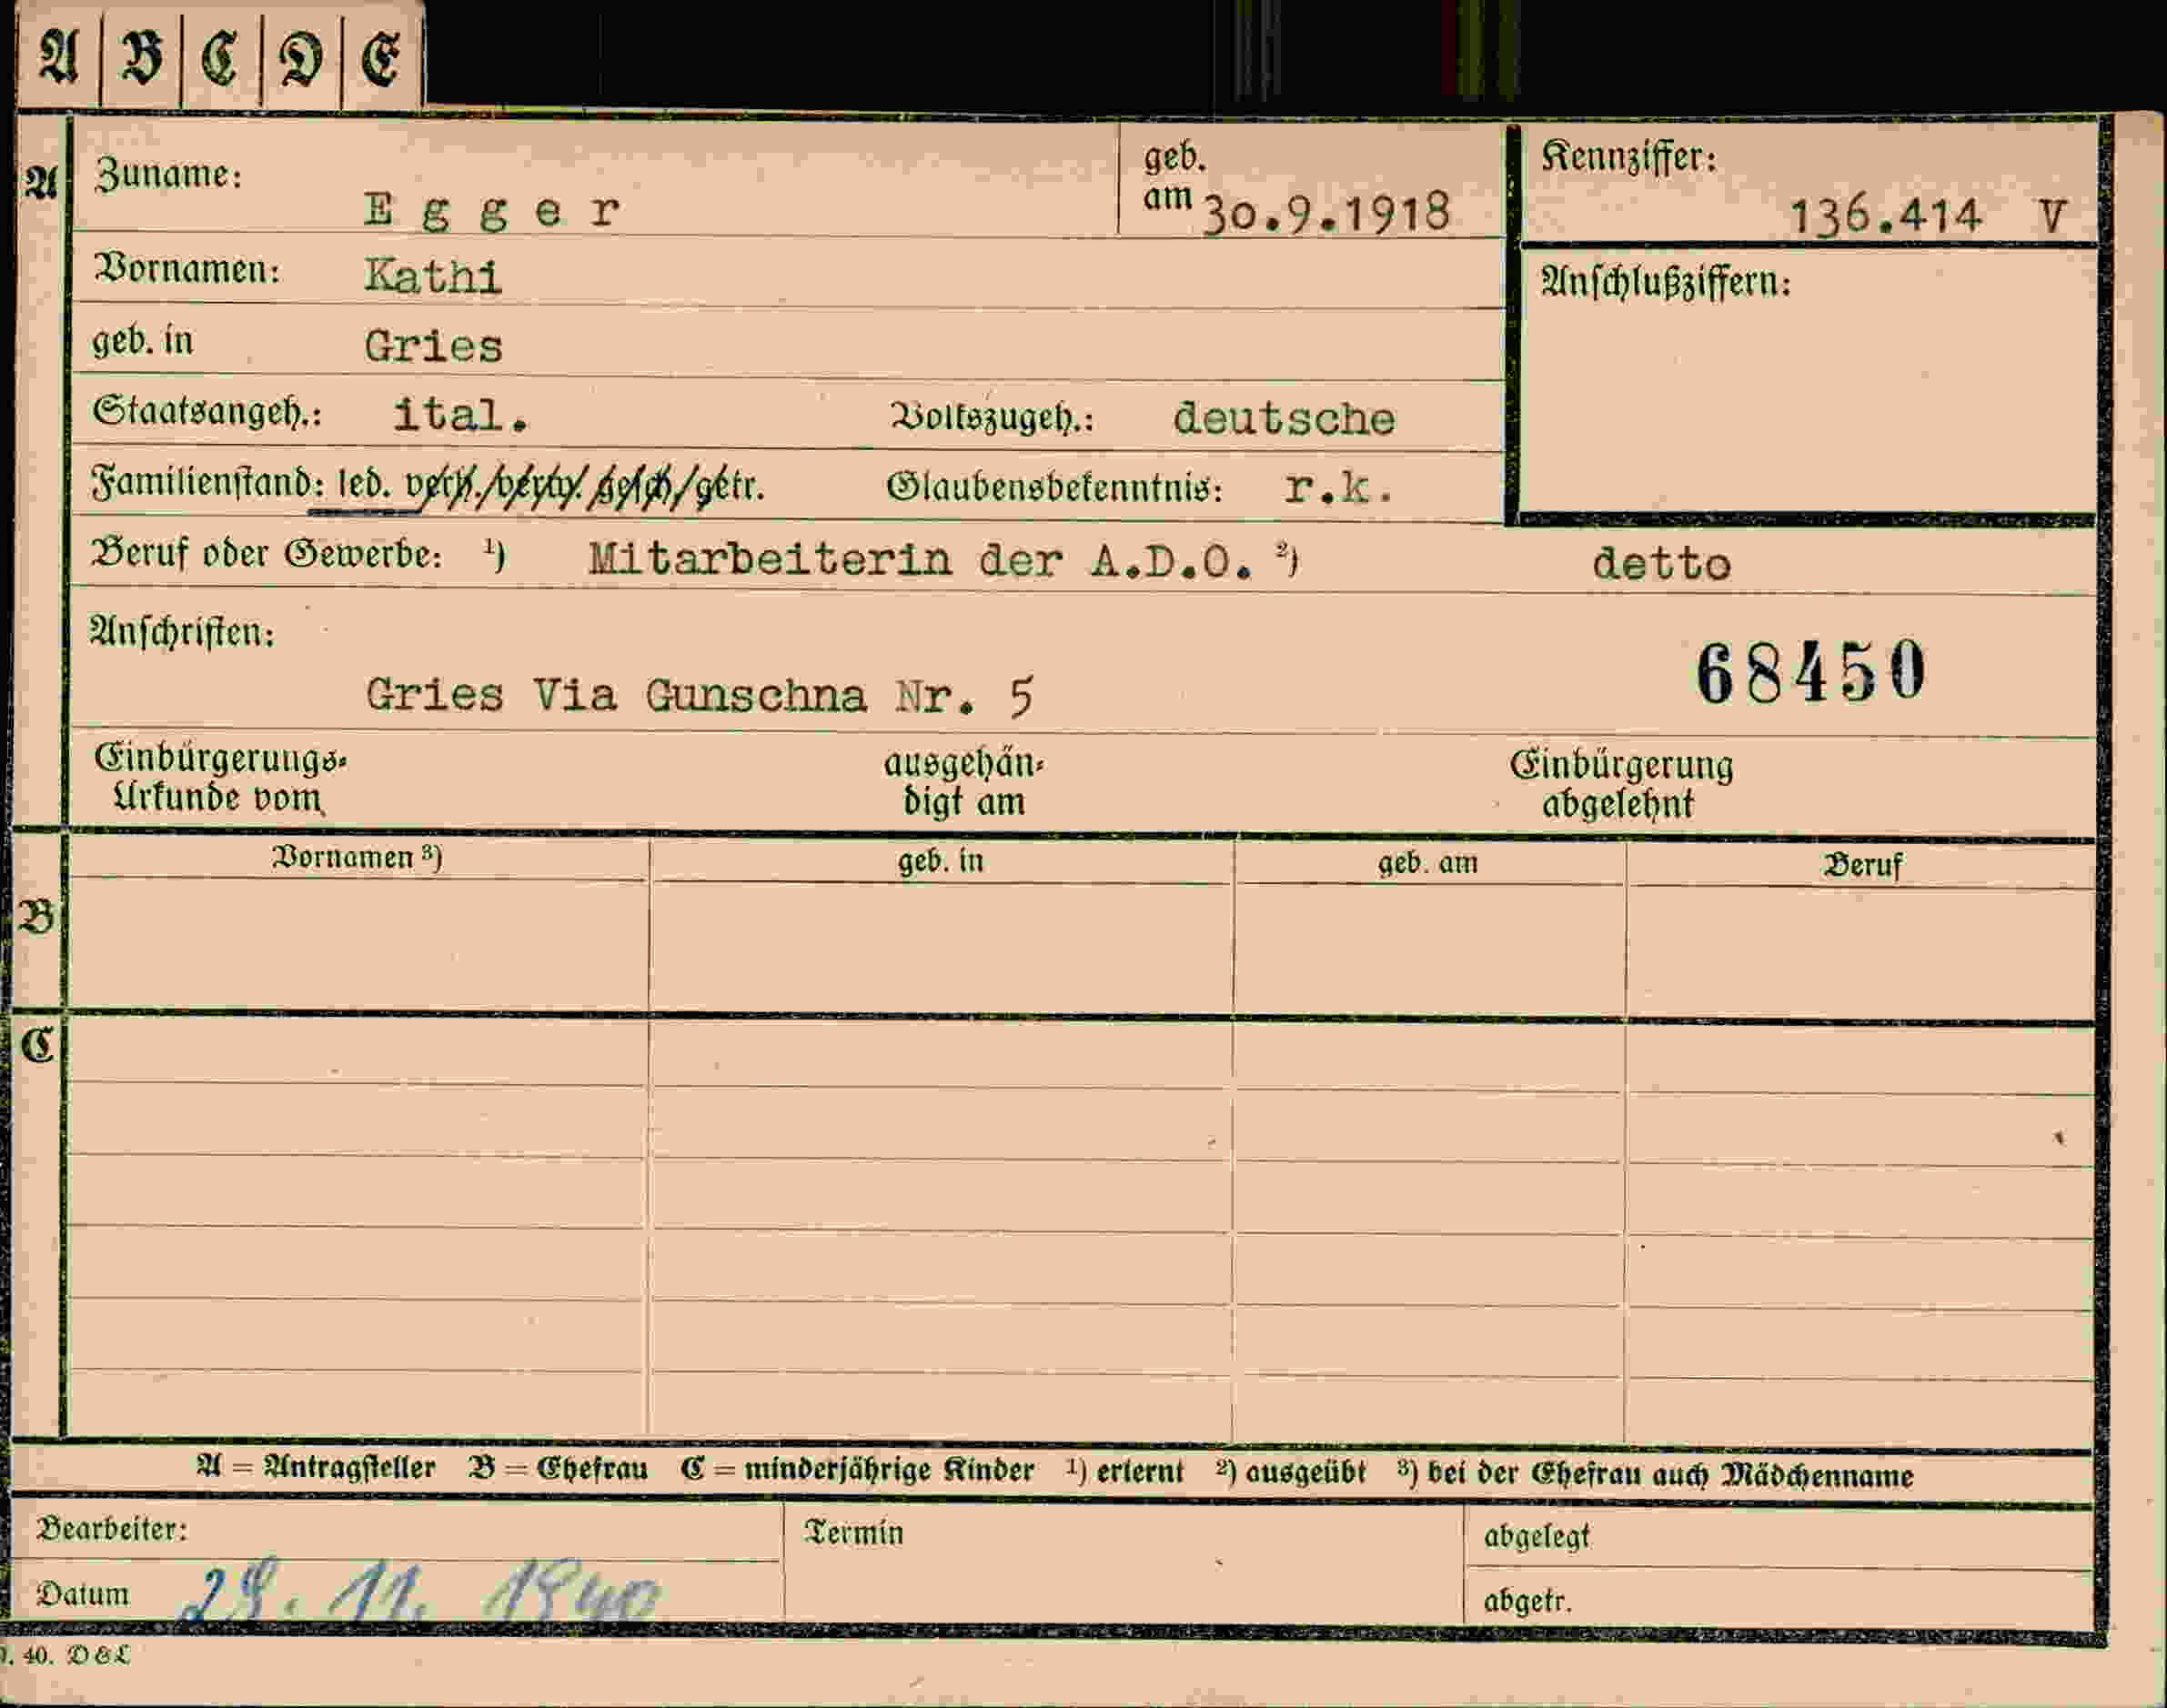 A B C D E
A Zuname: Egger geb. am 30.9.1918 Kennziffer: 136.414 V
Vornamen: Kathi Anschlußziffern:
geb. in Gries
Staatsangeh.: ital. Volkszugeh.: deutsche
Familienstand: led. verh./verw./gesch./getr. Glaubensbekenntnis: r.k.
Beruf oder Gewerbe: ¹) Mitarbeiterin der A.D.O. ²) detto
Anschriften:
68450
Gries Via Gunschna Nr. 5
Einbürgerungs- ausgehän- Einbürgerung
Urkunde vom digt am abgelehnt
Vornamen ³) geb. in geb. am Beruf
B
C
A = Antragsteller B = Ehefrau C = minderjährige Kinder ¹) erlernt ²) ausgeübt ³) bei der Ehefrau auch Mädchenname
Bearbeiter: Termin abgelegt
Datum 28. 11. 1940 abgetr.
40. D&L